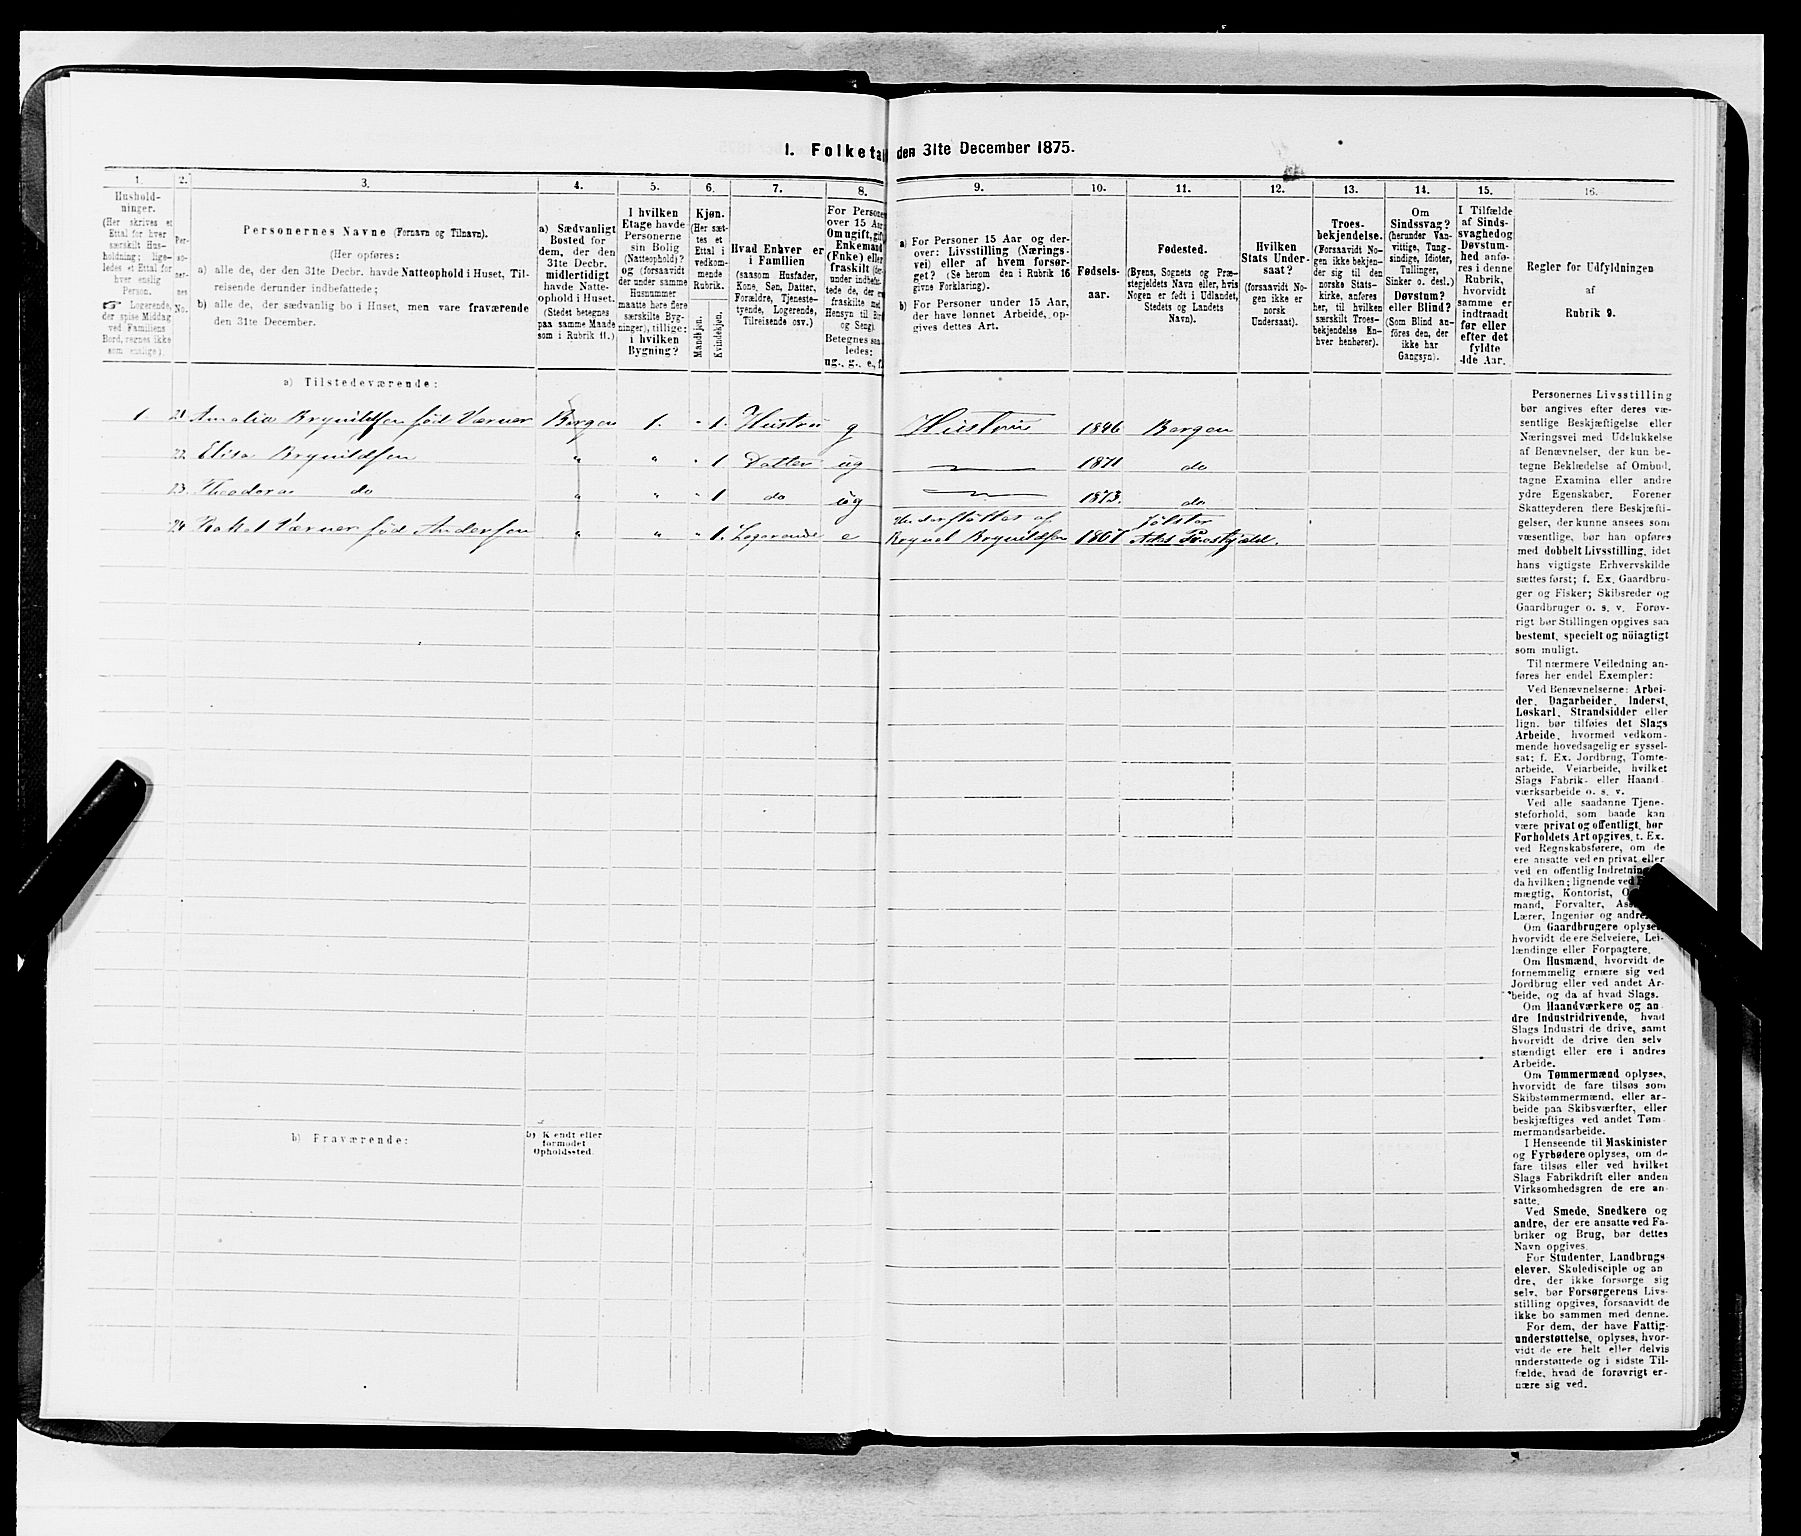 1. Folketal den 31te December 1875.
1.
Hushold-
ninger.
(Her skrives et
Ettal for hver
særskilt Hus-
holdning; lige-
ledes et Ettal for
hver enslig
Person.
☞ Logerende,
der spise Middag
ved Familiens
Bord, regnes ikke
som enslige).
2.
Per-
so-
ner-
nes
No.
3.
Personernes Navne (Fornavn og Tilnavn).
(Her opføres:
a) alle de, der den 31te Decbr. havde Natteophold i Huset, Til-
reisende derunder indbefattede;
b) alle de, der sædvanlig bo i Huset, men vare fraværende
den 31te December.
4.
a) Sædvanligt
Bosted for
dem, der den
31te Decbr.
midlertidigt
havde Natte-
ophold i Huset.
(Stedet betegnes
paa samme Maade
som i Rubrik 11.)
5.
I hvilken
Etage havde
Personerne
sin Bolig
(Natteophold)?
og (forsaavidt
der under samme
Husnummer
maatte høre flere
særskilte Byg-
ninger), tillige:
i hvilken
Bygning?
6.
Kjøn.
(Her sæt-
tes et
Ettal i
vedkom-
mende
Rubrik.
Mandkjøn.
Kvindekjøn.
7.
Hvad Enhver er
i Familien
(saasom Husfader,
Kone, Søn, Datter,
Forældre, Tjeneste-
tyende, Logerende,
Tilreisende osv.)
8.
For Persone
over 15 Aar
Om ugift, gift
Enkemand
(Enke) eller
fraskilt (der-
under indbefat-
tede de, der er
fraskilte med
Hensyn til Bord
og Seng).
Betegnes saa-
ledes:
ug., g., e., f.
9.
a) For Personer 15 Aar og der-
over: Livsstilling (Nærings-
vei) eller af hvem forsør-
get? (Se herom den i Rubrik 16
givne Forklaring).
b) For Personer under 15 Aar,
der have lønnet Arbeide, op-
gives dettes Art.
10.
Fødsels-
aar.
11.
Fødested.
(Byens, Sognets og Præ-
stegjeldets Navn eller, hvis
Nogen er født i Udlandet,
Stedets og Landets
Navn).
12.
Hvilken
Stats Under-
saat?
(forsaavidt No-
gen ikke er
norsk
Undersaat).
13.
Troes-
bekjendelse.
(Forsaavidt No-
gen ikke bekjen-
der sig til den
norske Stats-
kirke, anføres
her, til hvilken
særskilt Troes-
bekjendelse En-
hver henhører).
14.
Om
Sindssvag?
(herunder Van-
vittige, Tung-
sindige, Idioter,
Tullinger,
Sinker o. desl.)
Døvstum?
eller Blind?
(Som Blind an-
føres den, der
ikke har
Gangsyn).
15.
I Tilfælde
af Sinds-
svaghed og
Døvstum-
hed anfø-
res i denne
Rubrik,
hvorvidt
samme er
indtraadt
før eller
efter det
fyldte
4de Aar.
16.
Regler for Udfyldningen
af
Rubrik 9.
a) Tilstedeværende:
1. 21. Amalia Brynildsen fød Værner Bergen 1. " 1. Hustru g Hustru 1846 Bergen
22. Elisa Brynildsen " " " 1 Datter ug 1871 do
23. Theodora do " " " 1 do ug 1873. do
24. Rakel Værner fød Andersen " " " 1. Logerende e Understøttes af Brynel Brynildsen 1801 Jølster
b) Fraværende:
b) Kjendt eller
formodet
Opholdssted.
Personernes Livsstilling
bør angives efter deres væ-
sentlige Beskjæftigelse eller
Næringsvei med Udelukkelse
af Benævnelser, der kun be-
tegne Beklædelse af Ombud,
tagne Examina eller andre
ydre Egenskaber. Forener
Skatteyderen flere Beskjæfti-
gelser, der kunne ansees som
væsentlige, bør han opføres
med dobbelt Livsstilling, idet
hans vigtigste Erhvervskilde
sættes først; f. Ex. Gaardbru-
ger og Fisker; Skibsreder og
Gaardbruger o. s. v. Forøv-
rigt bør Stillingen opgives saa
bestemt, specielt og nöiagtigt
som muligt.
Til nærmere Veiledning an-
føres her endel Exempler:
Ved Benævnelserne: Arbei-
der, Dagarbeider, Inderst,
Løskarl, Strandsidder eller
lign. bør tilføies det Slags
Arbeide, hvormed vedkom-
mende hovedsagelig er syssel-
sat; f. Ex. Jordbrug, Tomte-
arbeide, Veiarbeide, hvilket
Slags Fabrik- eller Haand-
værksarbeide o. s. v.
Ved alle saadanne Tjene-
steforhold, som baade kan
være privat og offentligt, bør
Forholdets Art opgives, t. Ex.
ved Regnskabsførere, om de
ere ansatte ved en privat eller
ved en offentlig Indretning
da hvilken; lignende ved
mægtig, Kontorist,
mand, Forvalter,
Lærer, Ingeniør og andre.
Om Gaardbrugere oplyses,
hvorvidt de ere Selveiere, Lei-
lændinge eller Forpagtere.
Om Husmænd, hvorvidt de
fornemmelig ernære sig ved
Jordbrug eller ved andet Ar-
beide, og da af hvad Slags.
Om Haandværkere og an-
dre Industridrivende, hvad
Slags Industri de drive, samt
hvorvidt de drive den selv-
stændigt eller ere i andres
Arbeide.
Om Tømmermænd oplyses,
hvorvidt de fare tilsøs som
Skibstømmermænd, eller ar-
beide paa Skibsværfter, eller
beskjæftiges ved andet Tøm-
mermandsarbeide.
I Henseende til Maskinister
og Fyrbødere oplyses, om de
fare tilsøs eller ved hvilket
Slags Fabrikdrift eller anden
Virksomhedsgren de ere an-
satte.
Ved Smede, Snedkere og
andre, der ere ansatte ved Fa-
briker og Brug, bør dettes
Navn opgives.
For Studenter, Landbrugs-
elever, Skoledisciple og an-
dre, der ikke forsørge sig
selv, bør Forsørgerens Livs-
stilling opgives, forsaavidt de
ikke bo sammen med denne.
For dem, der have Fattig-
understøttelse, oplyses, hvor-
vidt de ere helt eller delvis
understøttede og i sidste Til-
fælde, hvad de forøvrigt er-
nære sig ved.